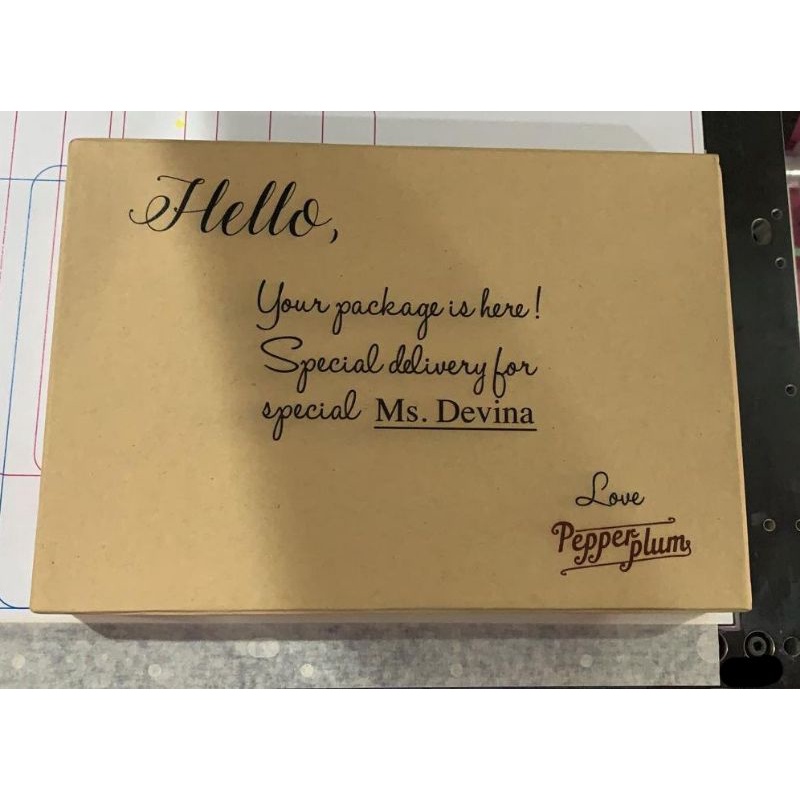 Hello,
Your package is here!
Special delivery for
special Ms. Devina
Love
Pepperplum